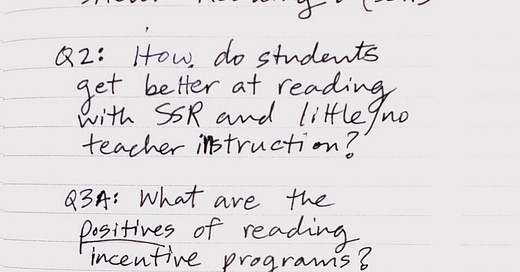 Q2: How do students
get better at reading
with SSR and little/no
teacher instruction?
Q3A: What are the
positives of reading
incentive programs?